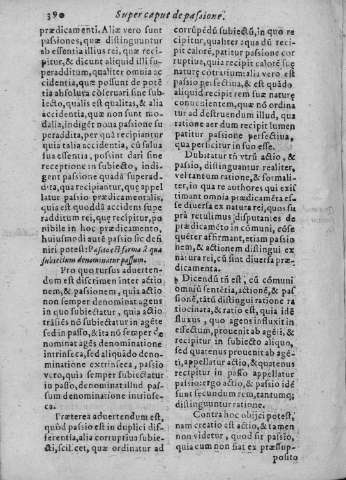 380 Super caput de passione.
prædicamenti. Aliæ vero sunt
passiones, quæ distinguuntur
ab essentia illius rei, quæ reci-
pitur, & dicunt aliquid illi su-
peradditum, qualiter omnia ac
cidentia, quæ possunt de potē
tia absoluta cōseruari sine sub
iecto, qualis est qualitas, & alia
accidentia, quæ non sunt mo-
dalia, indigēt noua passione su
peraddita, per quā recipiantur
quia talia accidentia, cū salua
sua essentia, possint dari sine
receptione in subiecto, indi-
gent passione quadā superad-
dita, per quā recipiantur, quæ appel
latur passio prædicamentalis,
quia est quoddā accidēs supe
radditum rei, quæ recipitur, po
nibile in hoc prædicamento,
huiusmodi autē passio sic defi
niri potest: Passio est forma à qua
subiectum denominatur passum.
Pro quo rursus aduerten-
dum est discrimen inter actio
nem, & passionem, quia actio
non semper denominat agens
in quo subiectatur, quia actio
trāsiēs nō subiectatur in agēte
sed in passo, & ita nō semper de
nominat agēs denominatione
intrinseca, sed aliquādo deno-
minatione extrinseca, passio
vero, quia semper subiectatur
in passo, denominat illud pas-
sum denominatione intrinse-
ca.
Præterea aduertendum est,
quòd passio est in duplici dif-
ferentia, alia corruptiua subie-
cti, scil. cet, quæ ordinatur ad
corrūpēdū subiectū, in quo re
cipitur, qualiter aqua dū reci-
pit calorē, patitur passione cor
ruptiua, quia recipit calorē suæ
naturę cōtrarium: alia vero est
passio perfectiua, & est quādo
aliquid recipit rem suæ naturę
conuenientem, quæ nō ordina
tur ad destruendum illud, qua
ratione aer dum recipit lumen
patitur passione perfectiua,
qua perficitur in suo esse.
Dubitatur tn̄ vtrū actio, &
passio, distinguantur realiter,
vel tantum ratione, & formali-
ter, in qua re authores qui exi
timant omnia prædicamēta es-
se diuersa realiter, quos iam su
prà retulimus disputantes de
prædicamēto in cōmuni, cōse
quēter affirmant, etiam passio
nem, & actionem distingui ex
natura rei, cū sint diuersa præ-
dicamenta.
Dicendū tn̄ est, cū cōmuni
omniū sentētia, actionē, & pas
sionē, tātū distingui ratione ra
tiocinata, & ratio est, quia idē
fluxus, quo agens influxit in
effectum, prouenit ab agēte, &
recipitur in subiecto aliquo,
sed quatenus prouenit ab agē-
te, appellatur actio, & quatenus
recipitur in passo appellatur
passio: ergo actio, & passio idē
sunt secundum rem, tantumq;
distinguuntur ratione.
Contra hoc obijci potest,
nam creatio est actio, & tamen
non videtur, quod sit passio
quia cum non fiat ex præsup-
posito